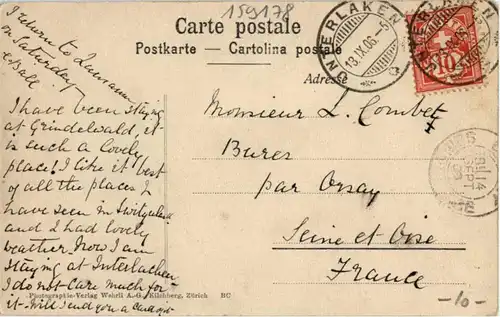 159178
Carte postale
Postkarte – Cartolina postale
Adresse
UNTERLAKEN
13.IX.06.-5
I return to Lausanne
on Saturday
I have been staying
at Grindelwald, it
is such a lovely
place! I like it best
of all the places I
have seen in Switzerland
and I had lovely
weather. Now I am
staying at Interlachen
I do not care much for
it. Will send you a card of it
Monsieur L. Combet
Bures
par Orsay
Seine et Oise
France
Photographie-Verlag Wehrli A.-G., Kilchberg, Zürich BC
10
-10-